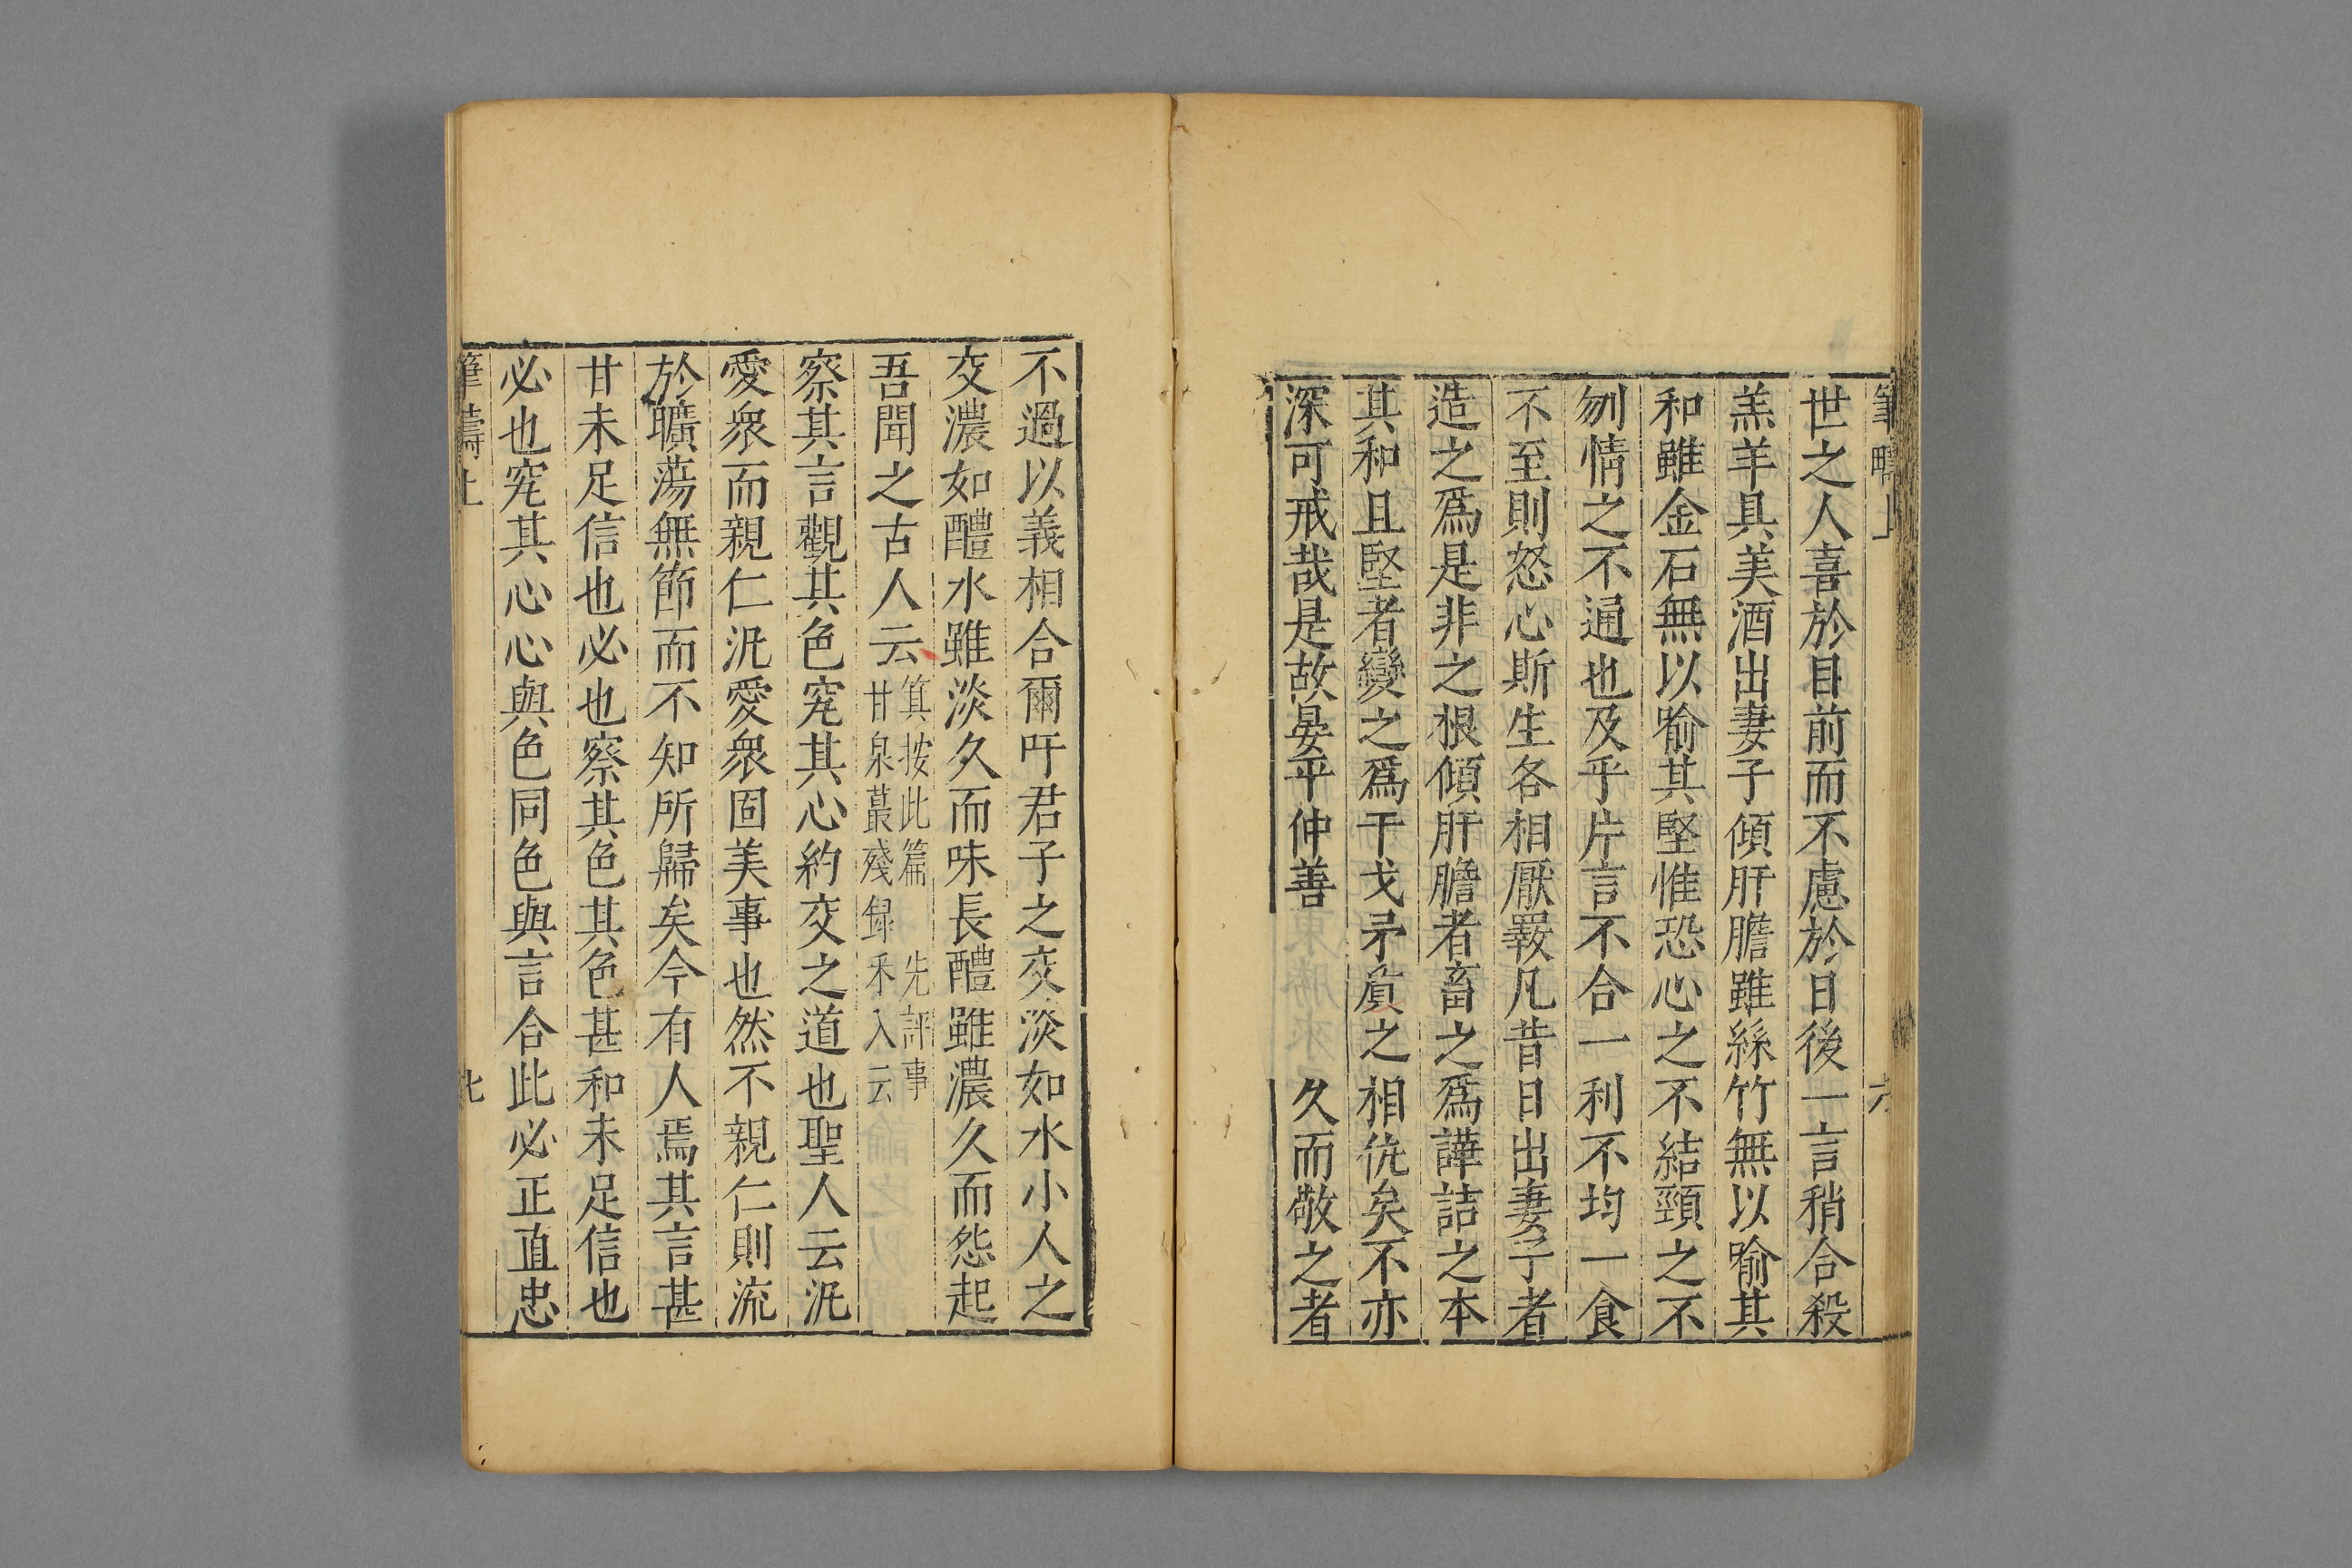 筆疇上　六
世之人喜於目前而不慮於日後一言稍合殺
羔羊具美酒出妻子傾肝膽雖絲竹無以喻其
和雖金石無以喻其堅惟恐心之不結頸之不
刎情之不通也及乎片言不合一利不均一食
不至則怒心斯生各相厭斁凡昔日出妻子者
造之爲是非之根傾肝膽者畜之爲譁詰之本
其和且堅者變之爲干戈矛質之相仇矣不亦
深可戒哉是故晏平仲善　久而敬之者
不過以義相合爾吁君子之交淡如水小人之
交濃如醴水雖淡久而味長醴雖濃久而怨起
吾聞之古人云
箕按此篇　先評事
甘泉藂殘録采入云
察其言觀其色究其心約交之道也聖人云汎
愛衆而親仁汎愛衆固美事也然不親仁則流
於曠蕩無節而不知所歸矣今有人焉其言甚
甘未足信也必也察其色其色甚和未足信也
必也究其心心與色同色與言合此必正直忠
筆疇上　七